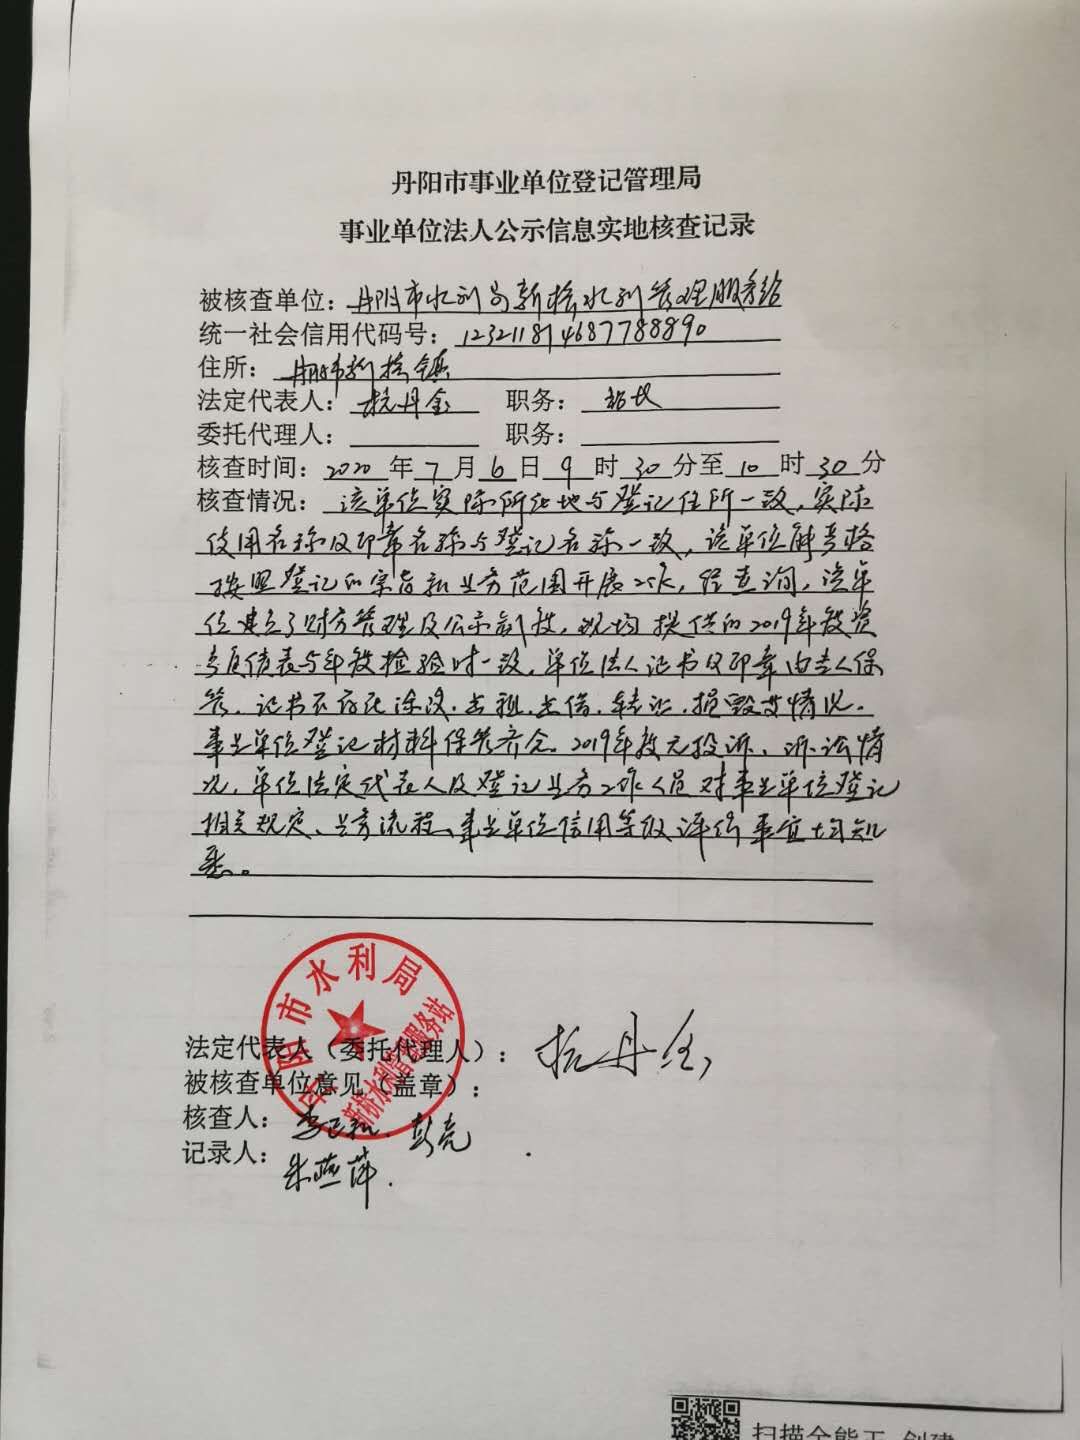 丹阳市事业单位登记管理局
事业单位法人公示信息实地核查记录
被核查单位：丹阳市水利局新桥水利管理服务站
统一社会信用代码号：123211814687788890
住所：丹阳市新桥镇
法定代表人：杭丹金 职务：站长
委托代理人： 职务：
核查时间：2020年7月6日9时30分至10时30分
核查情况：该单位实际所在地与登记住所一致，实际
使用名称及印章名称与登记名称一致，该单位能严格
按照登记的宗旨和业务范围开展工作，经查询，该单
位建立了财务管理及公示制度，现场提供的2019年度资
产负债表与年度检验时一致，单位法人证书及印章由专人保
管，证书不存在涂改、出租、出借、转让、损毁等情况。
事业单位登记材料保管齐全。2019年度无投诉、诉讼情
况，单位法定代表人及登记业务工作人员对事业单位登记
相关规定、业务流程、事业单位信用等级评价事宜均知
悉。
丹阳市水利局
新桥水利管理服务站
法定代表人（委托代理人）：杭丹金
被核查单位意见（盖章）：
核查人： 彭亮
记录人：朱燕萍.
扫描全能王 创建